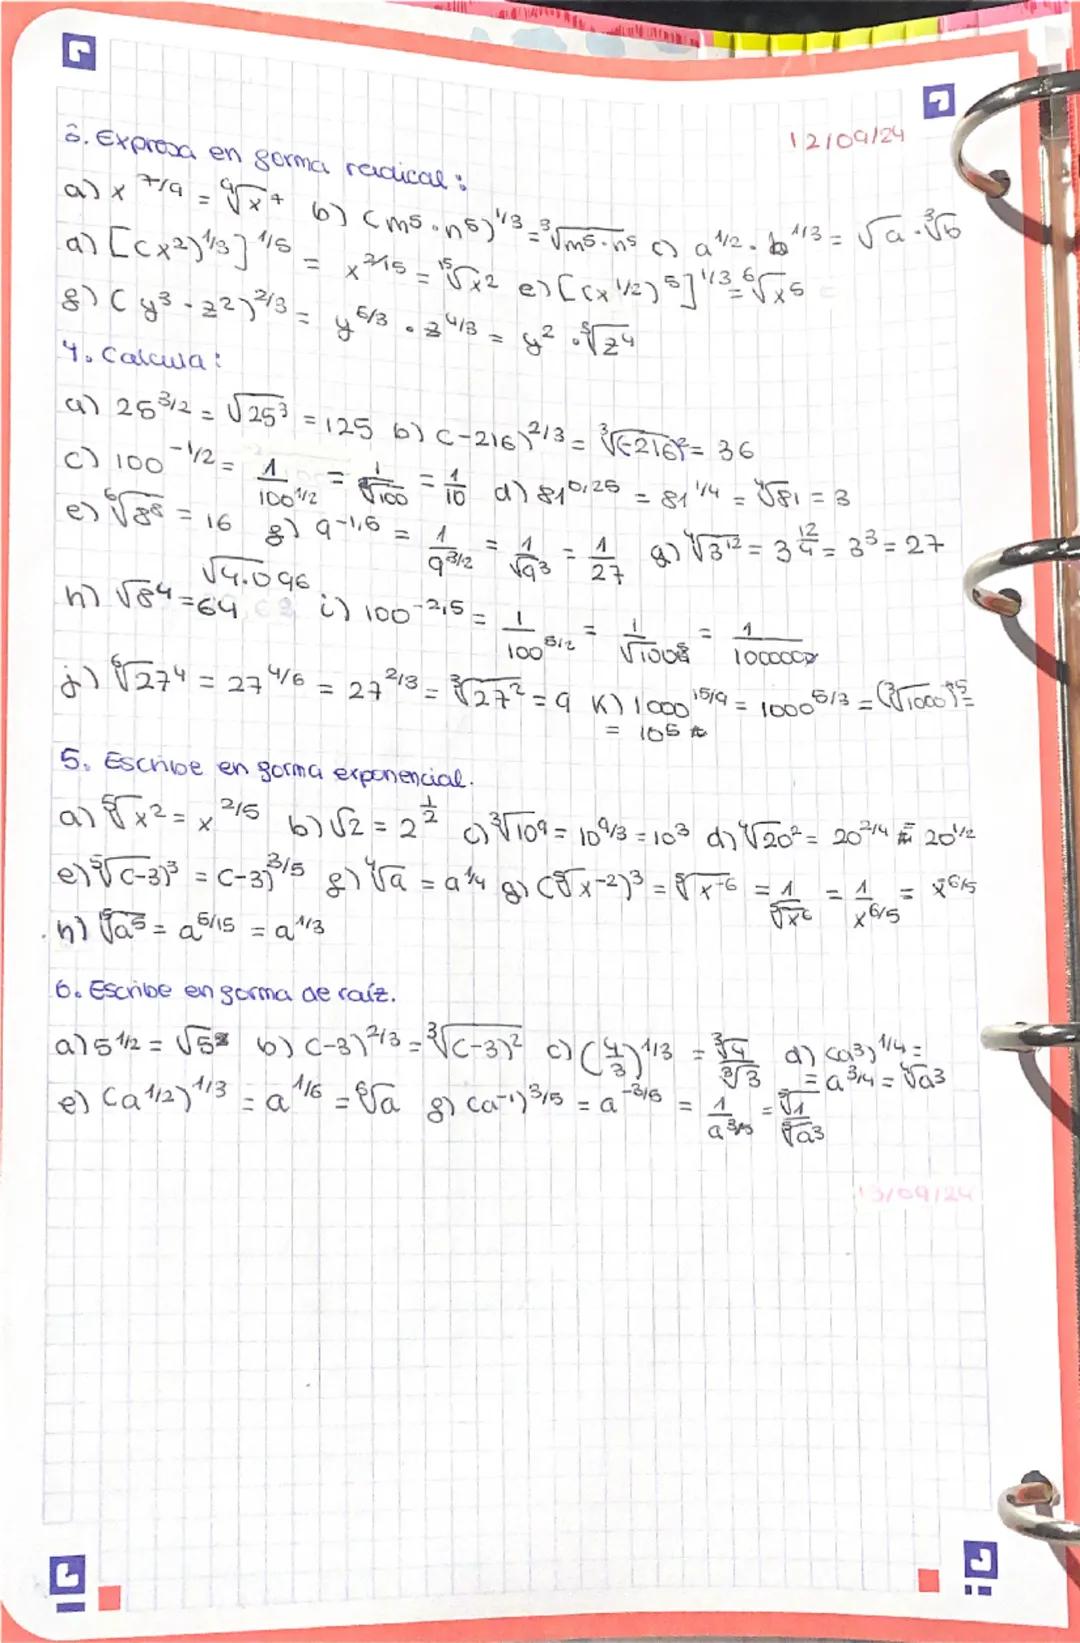 12/09/24
3. Expresa en forma radical:
a) x^7/9 = ⁹√x⁷ b) (m⁵·n⁵)^1/3 = ³√m⁵·n⁵ c) a^1/2 · b^1/3 = √a · ³√b
d) [(x²)^1/3]^1/5 = x^2/15 = ¹⁵√x² e) [(x^1/2)^5]^1/3 = ⁶√x⁵
f) (y³·z²)^2/3 = y^6/3 · z^4/3 = y² · ³√z⁴
4. Calcula:
a) 25^3/2 = √25³ = 125 b) (-216)^2/3 = ³√(-216)² = 36
c) 100^-1/2 = 1/100^1/2 = 1/√100 = 1/10 d) 81^0,25 = 81^1/4 = ⁴√81 = 3
e) ⁶√8⁸ = 16 f) 9^-1,5 = 1/9^3/2 = 1/√9³ = 1/27 g) ⁴√3¹² = 3^12/4 = 3³ = 27
√4.096
h) √8⁴ = 64 i) 100^-2,5 = 1/100^5/2 = 1/√100⁵ = 1/100000
j) ⁶√27⁴ = 27^4/6 = 27^2/3 = ³√27² = 9 K) 1000^15/9 = 1000^5/3 = (³√1000)⁵ =
= 10⁵
5. Escribe en forma exponencial.
a) ⁵√x² = x^2/5 b) √2 = 2^1/2 c) ³√10⁹ = 10^9/3 = 10³ d) ⁴√20² = 20^2/4 = 20^1/2
e) ⁵√(-3)³ = (-3)^3/5 f) ⁴√a = a^1/4 g) (⁵√x^-2)³ = ⁵√x^-6 = 1/⁵√x⁶ = 1/x^6/5 = x^-6/5
h) ¹⁵√a⁵ = a^5/15 = a^1/3
6. Escribe en forma de raíz.
a) 5^1/2 = √5 b) (-3)^2/3 = ³√(-3)² c) (4/3)^1/3 = ³√4/³√3 d) (a³)^1/4 =
= a^3/4 = ⁴√a³
e) (a^1/2)^1/3 = a^1/6 = ⁶√a f) (a^-1)^3/5 = a^-3/5 = 1/a^3/5 = ⁵√1/⁵√a³
13/09/24